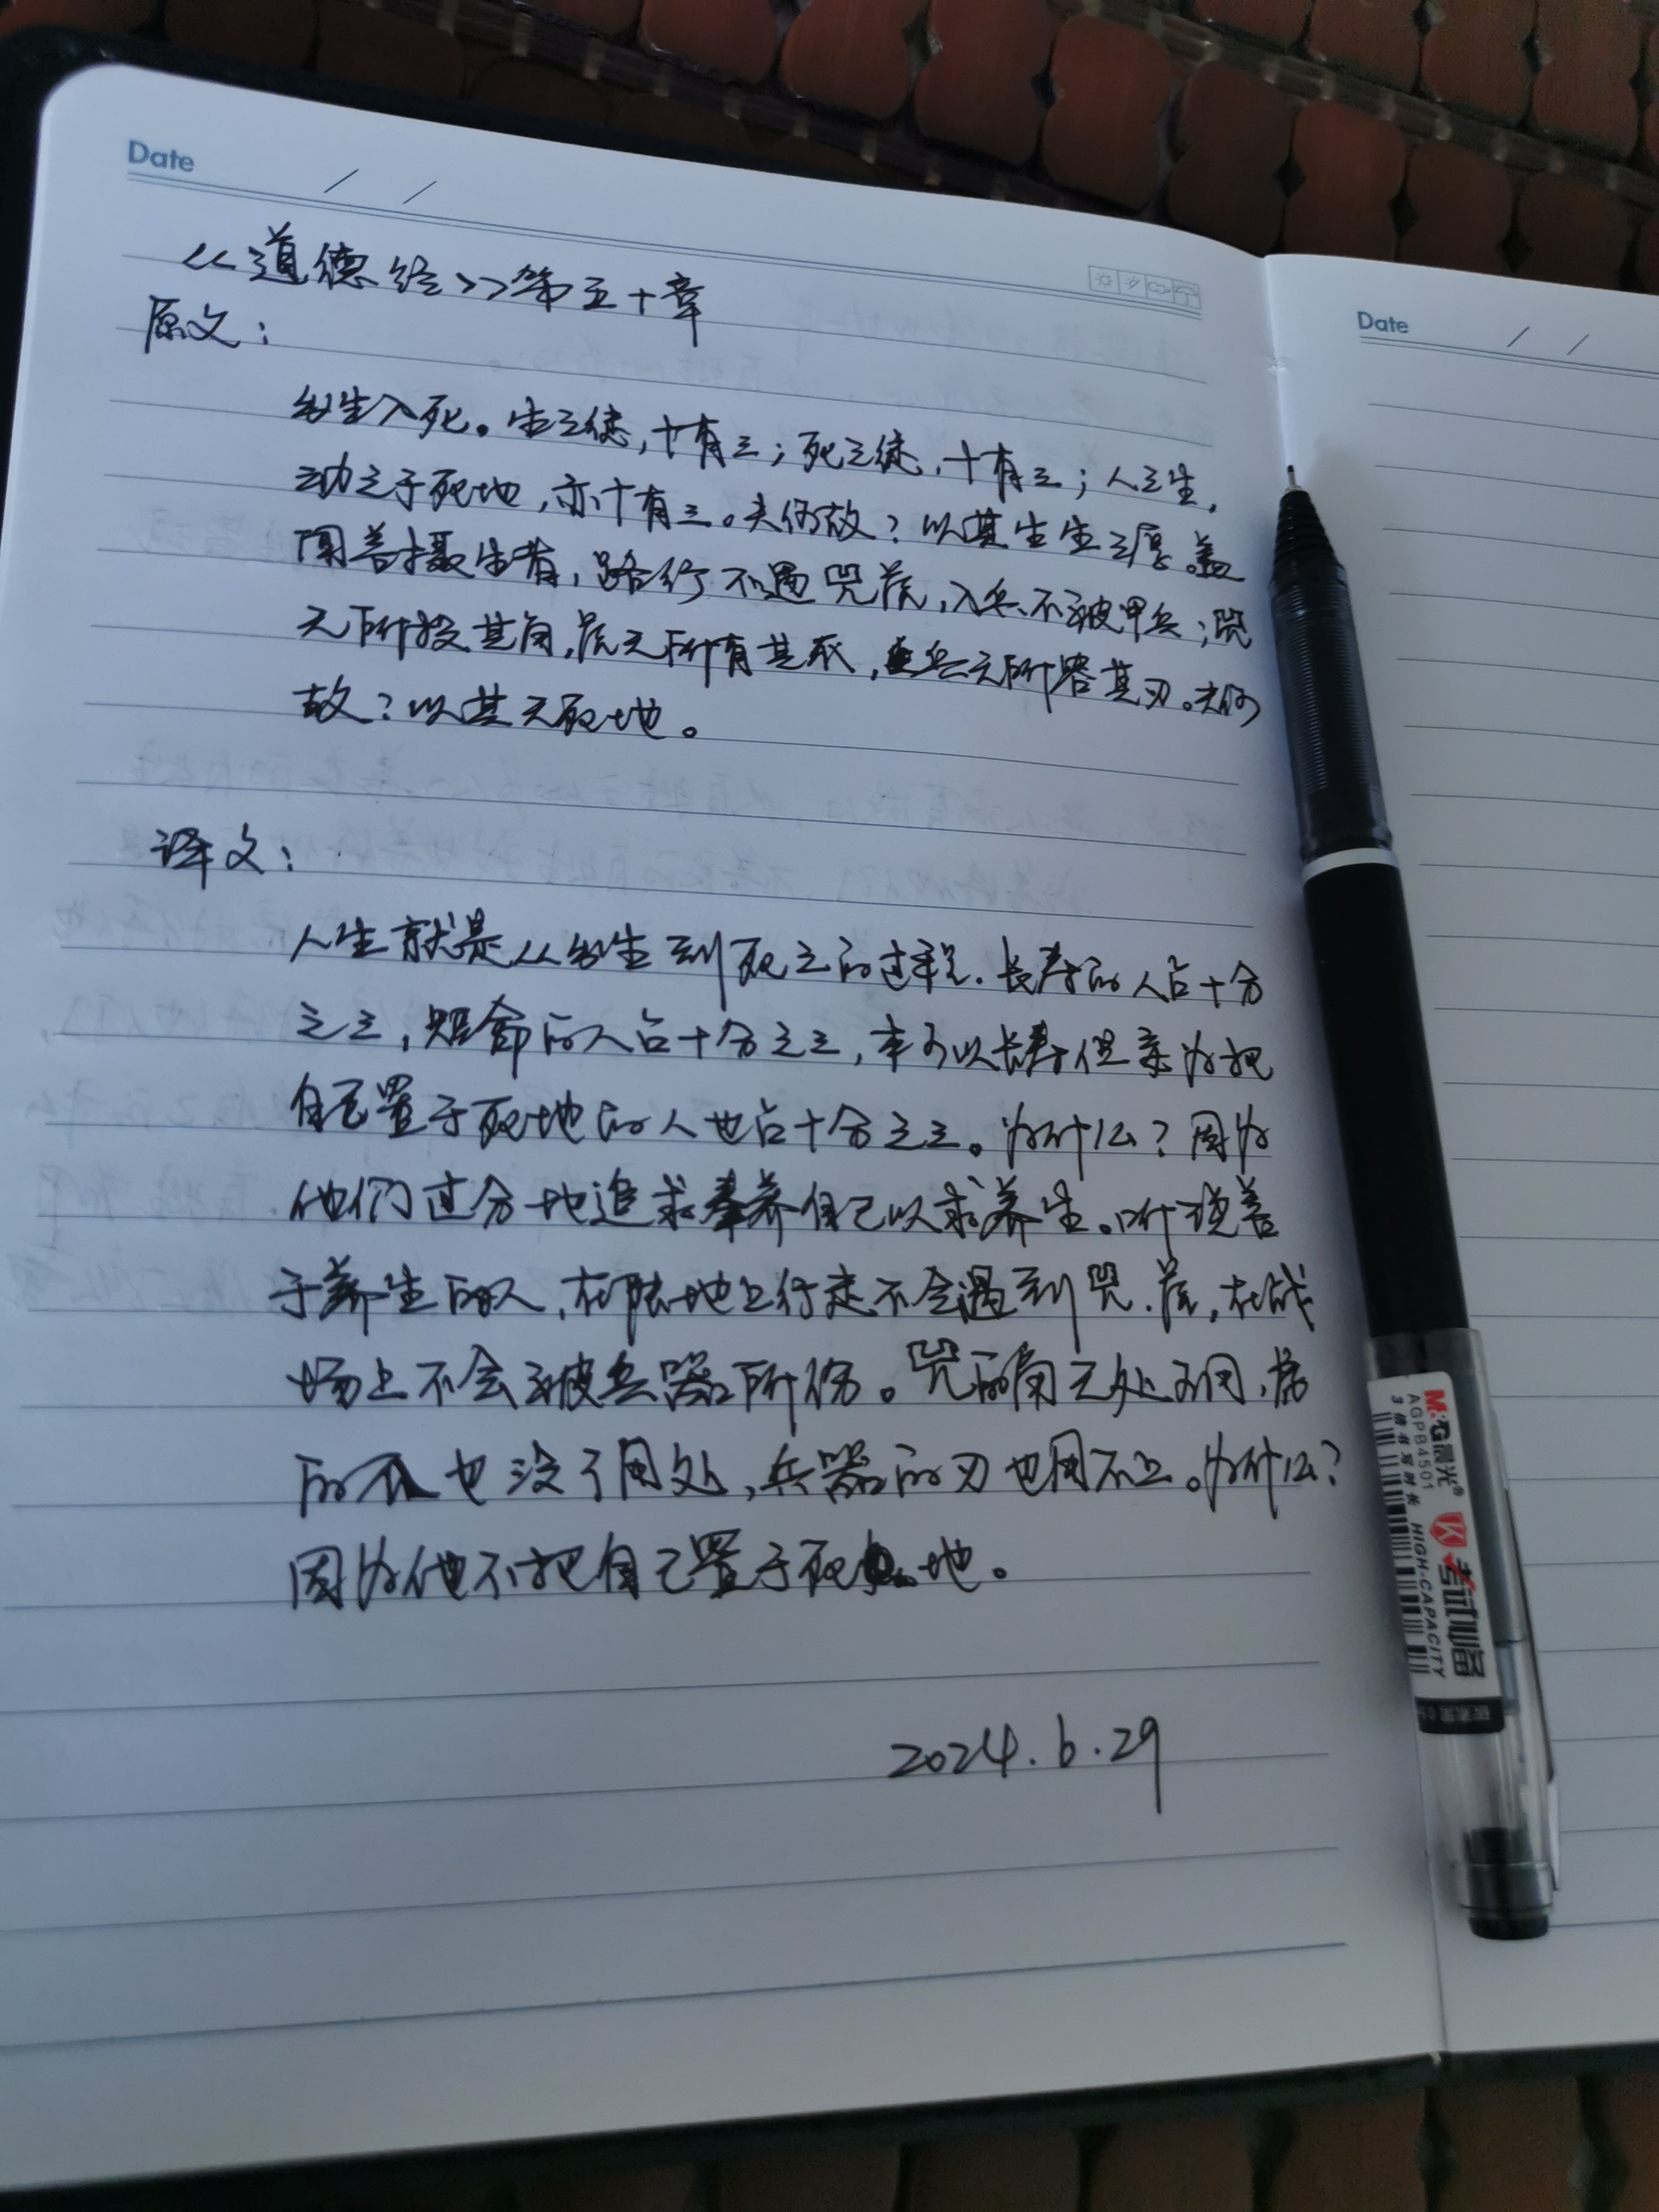 Date / /
《道德经》第五十章
原文：
出生入死。生之徒，十有三；死之徒，十有三；人之生，
动之于死地，亦十有三。夫何故？以其生生之厚。盖
闻善摄生者，路行不遇兕虎，入兵不被甲兵；兕
无所投其角，虎无所有其爪，兵无所容其刃。夫何
故？以其无死地。
译文：
人生就是从出生到死之的过程。长寿的人占十分
之三，短命的人占十分之三，本可以长寿但亲为把
自己置于死地的人也占十分之三。为什么？因为
他们过分地追求奉养自己以求养生。听说善
于养生的人，在陆地上行走不会遇到兕、虎，在战
场上不会被兵器所伤。兕的角无处可用，虎
的爪也没了用处，兵器的刃也用不上。为什么？
因为他不把自己置于死地。
2024.6.29
Date / /
M&G晨光®
AGPB4501
3倍书写时长
HIGH-CAPACITY
考试必备